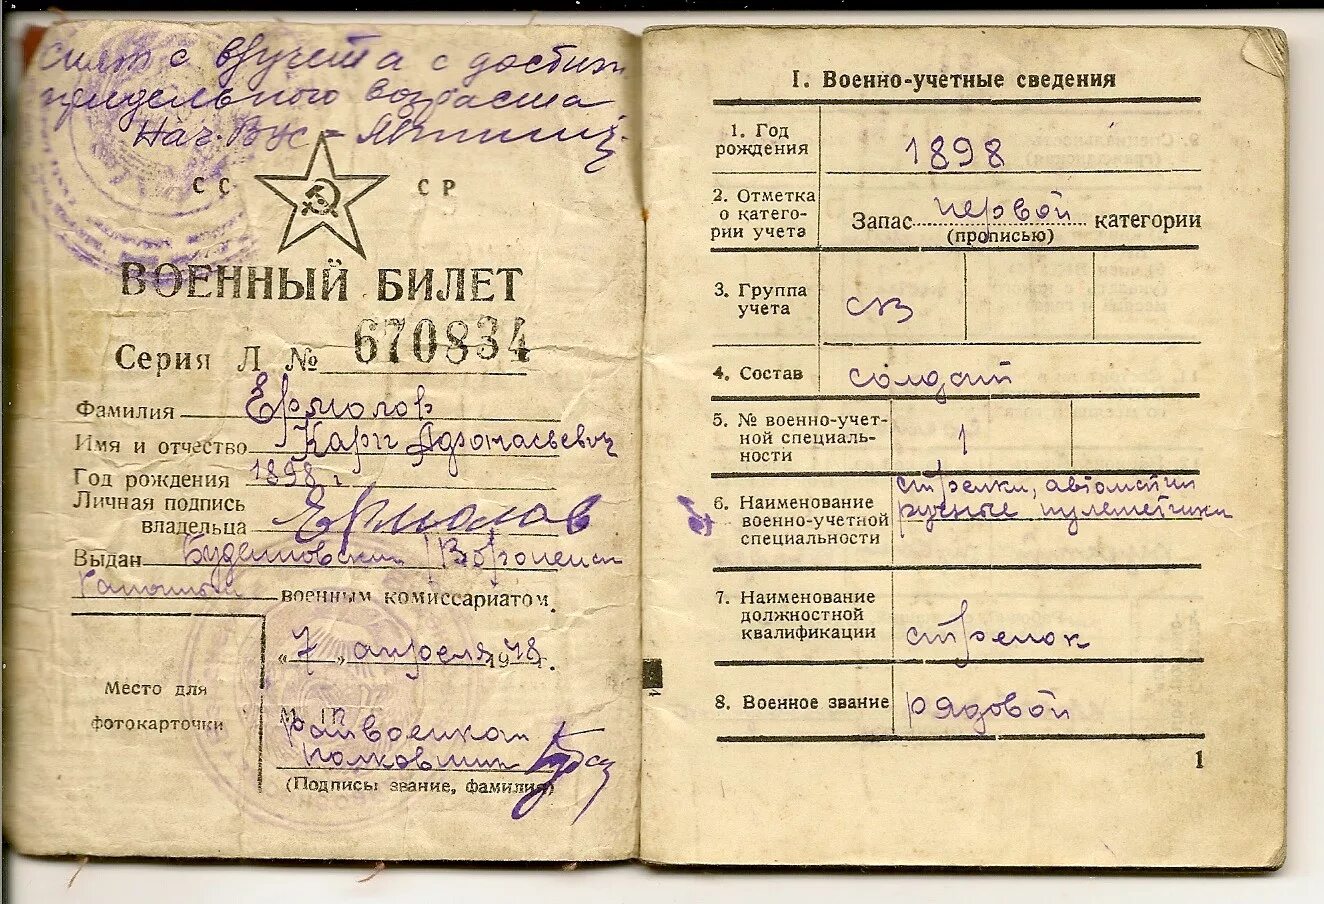 Снят с в/учета с достиж
предельного возраста
Нач. ВУС –
СС СР
ВОЕННЫЙ БИЛЕТ
Серия Л № 670834
Фамилия Ермолов
Имя и отчество Карп Афонасьевич
Год рождения 1898 г
Личная подпись
владельца Ермолов
Выдан Буденновским Воронежст
военным комиссариатом.
„7" апреля 1948 г.
Место для
фотокарточки
М. П.
Райвоенком
полковник
(Подписы звание, фамилия)
I. Военно-учетные сведения
1. Год
рождения
1898
2. Отметка
о катего-
рии учета
Запас первой категории
(прописью)
3. Группа
учета
СВ
4. Состав солдат
5. № военно-учет-
ной специаль-
ности
1
6. Наименование
военно-учетной
специальности
стрелки, автоматчи
ручные пулеметчики
7. Наименование
должностной
квалификации
стрелок
8. Военное звание рядовой
1